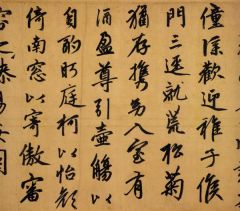 僮僕歡迎稚子候
門三逕就荒松菊
猶存攜幼入室有
酒盈尊引壺觴以
自酌眄庭柯以怡顏
倚南窓以寄傲審
容膝之易安園